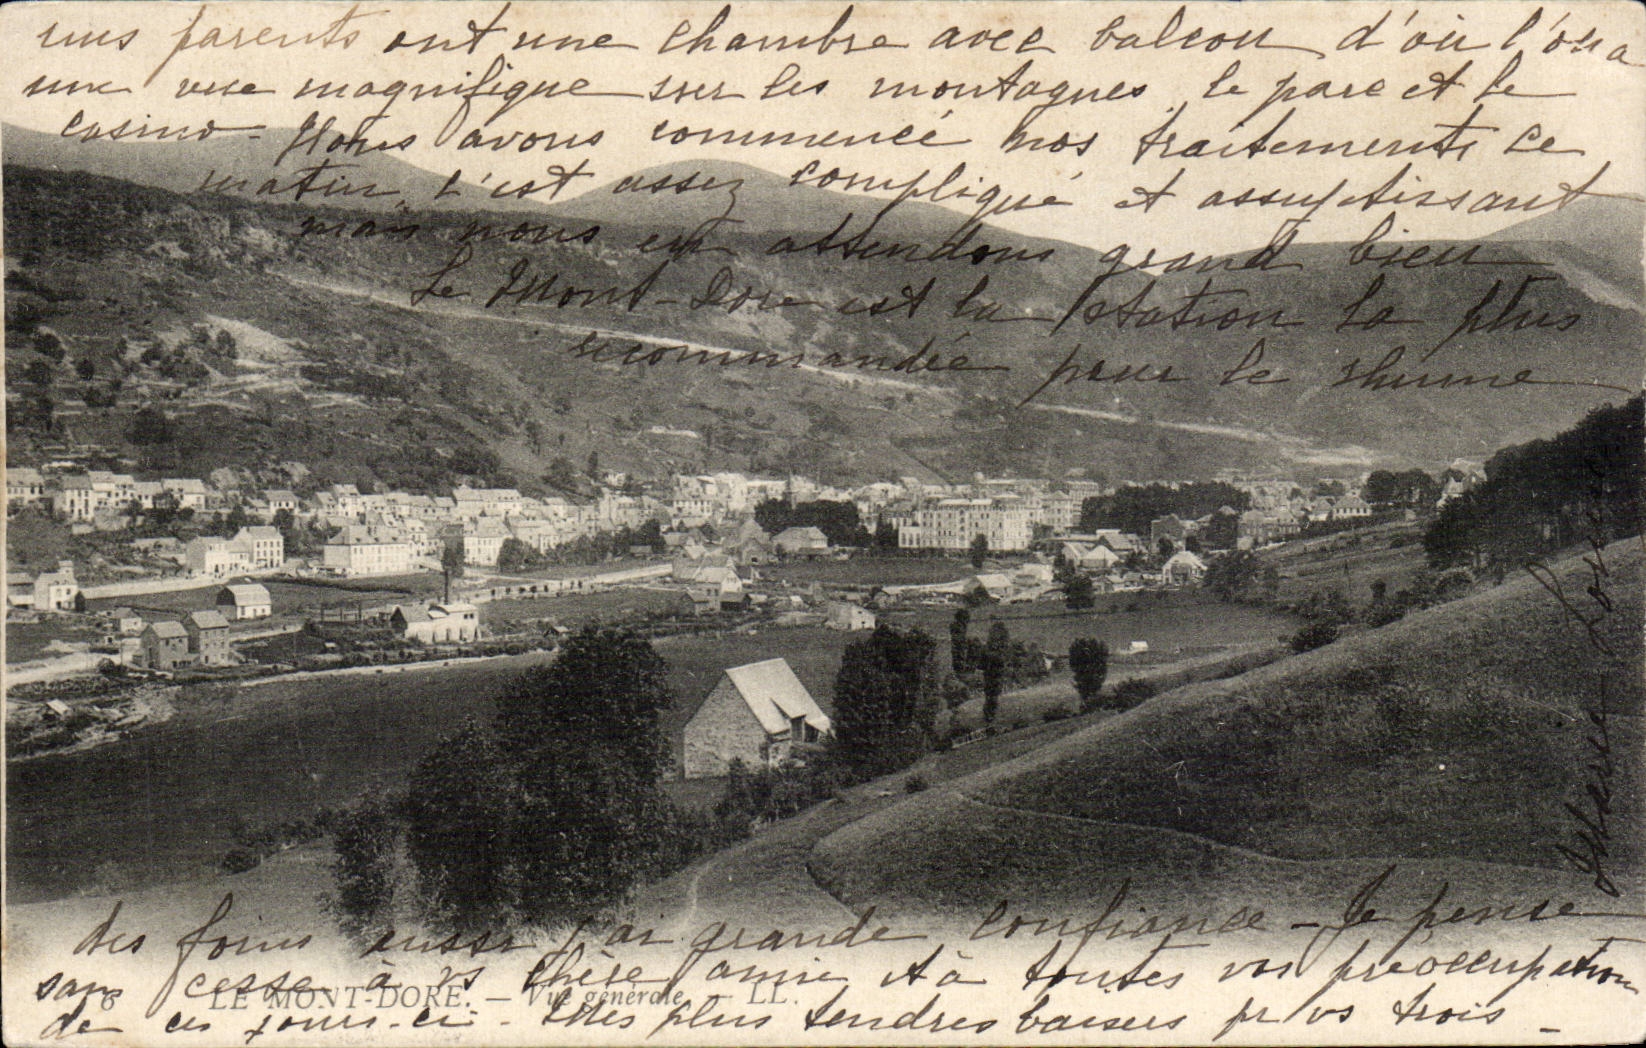 mes parents ont une chambre avec balcon d'où l'on a
une vue magnifique sur les montagnes, le parc et le
casino - Nous avons commencé nos traitements ce
matin, c'est assez compliqué et assujetissant
mais nous en attendons grand bien
Le Mont-Dore est la station la plus
recommandée pour le rhume
des foins aussi j'ai grande confiance - Je pense
sans cesse à vs chère amie et à toutes vos préoccupations
de ces jours-ci - Mes plus tendres baisers pr vs trois -
6 LE MONT-DORE. - Vue générale - LL.